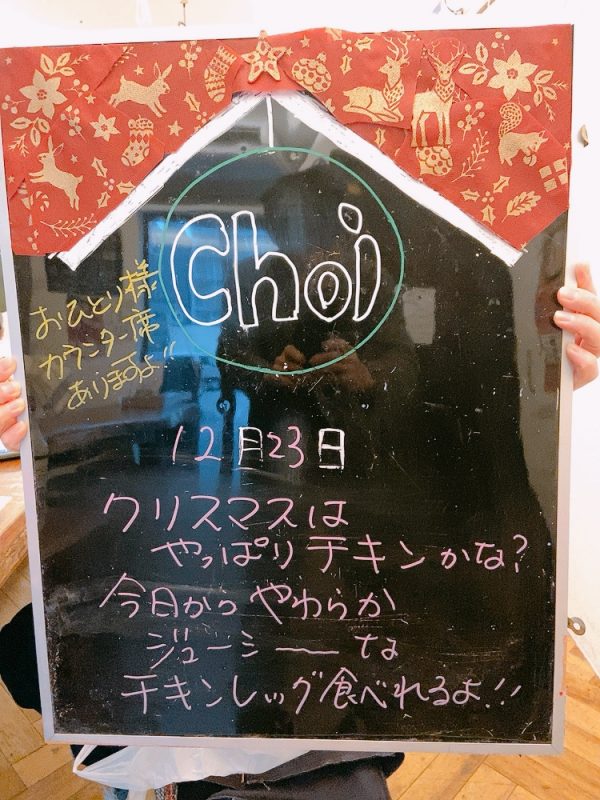 Choi
おひとり様
カウンター席
ありますよ!!
12月23日
クリスマスは
やっぱりチキンかな?
今日から やわらか
ジューシーーな
チキンレッグ食べれるよ!!